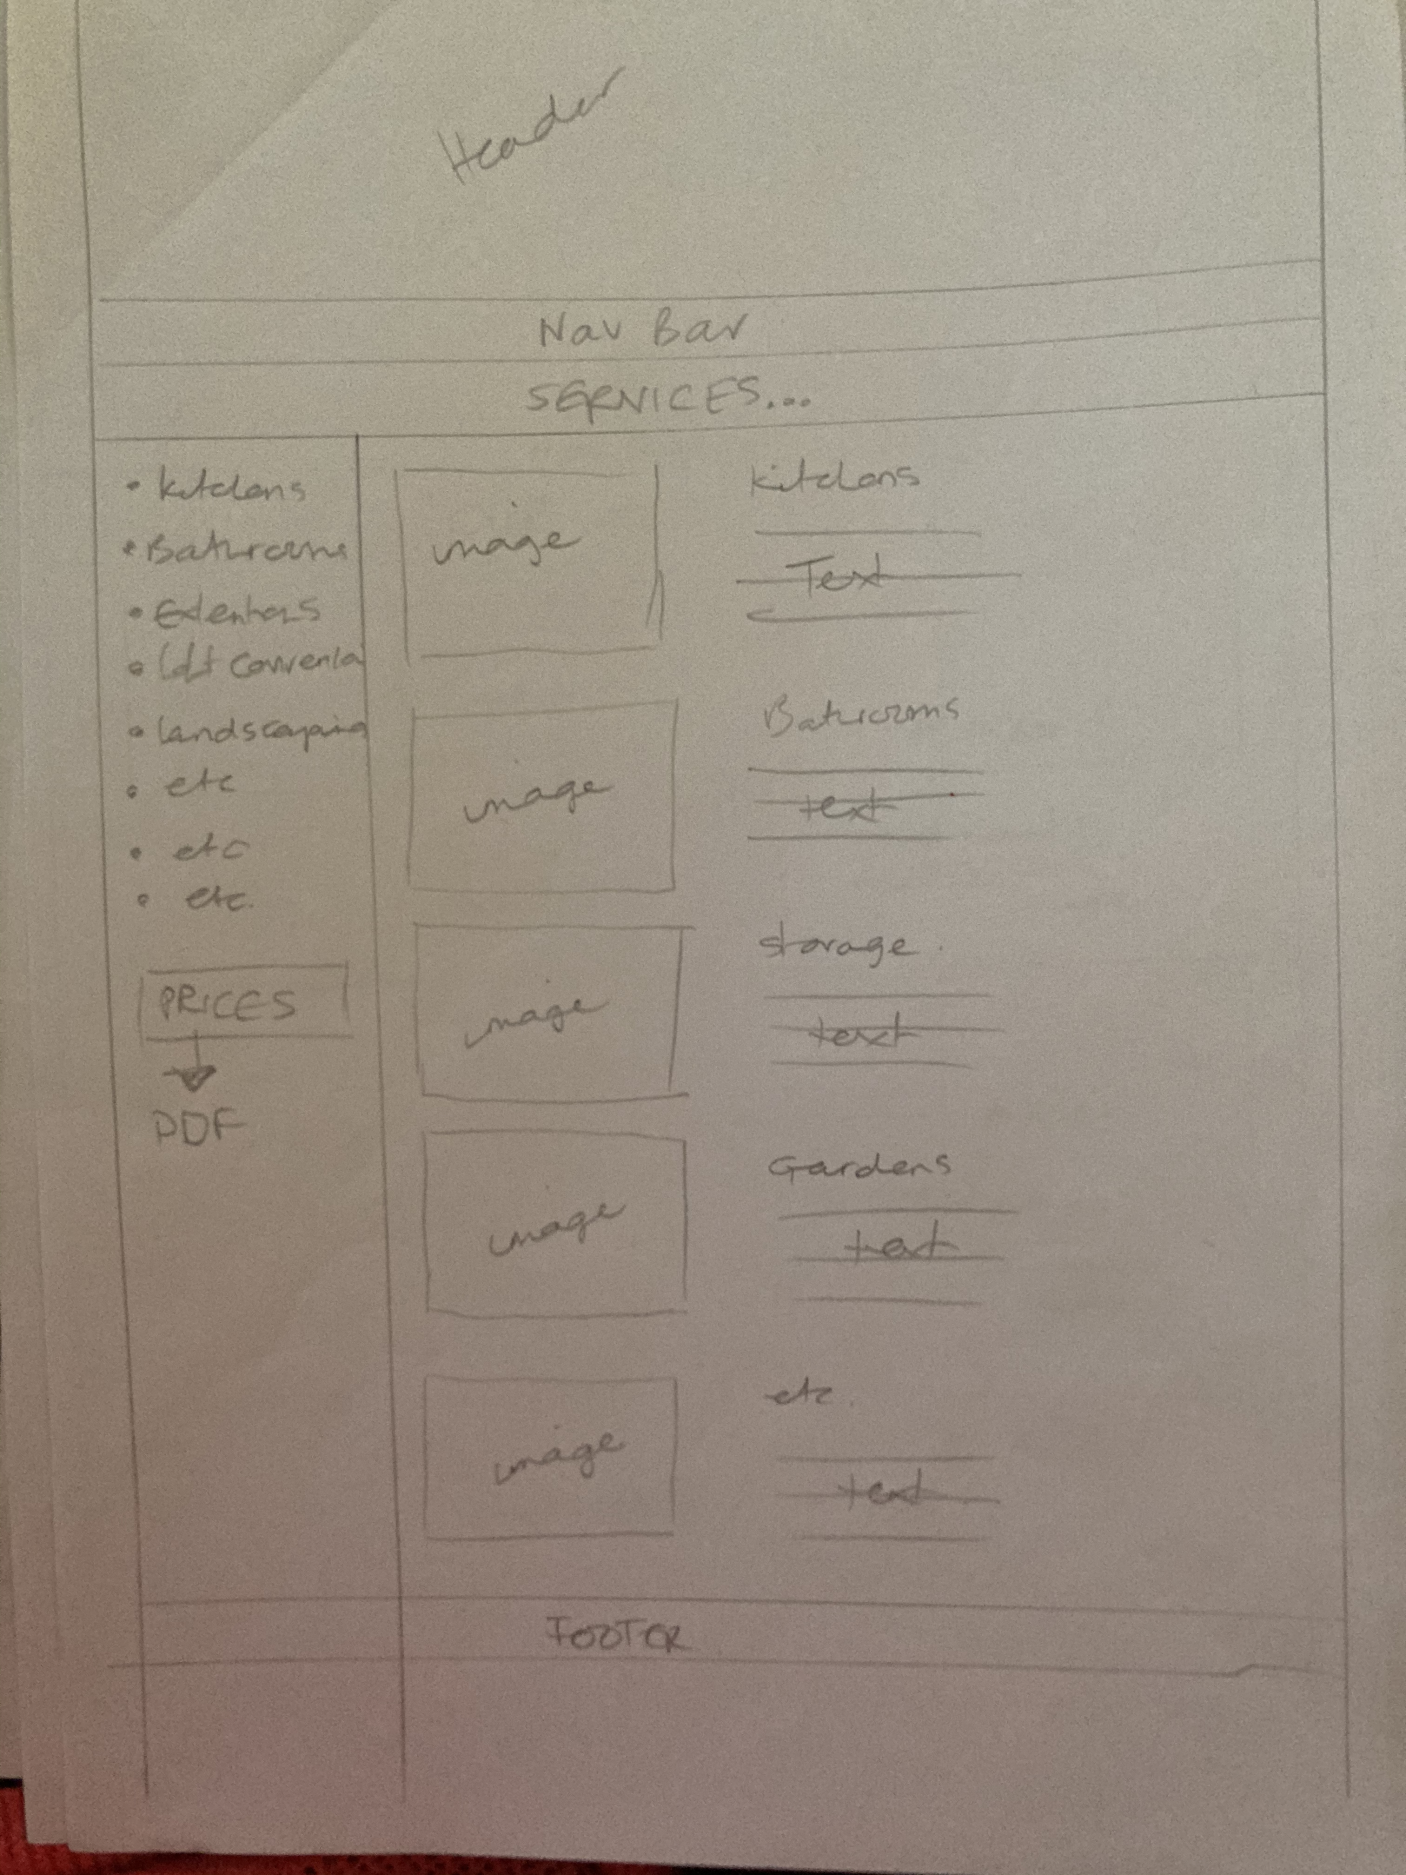 Header
Nav Bar
SERVICES...
• Kitchens
• Bathrooms
• Extentions
• Loft Conversion
• Landscaping
• etc
• etc
• etc.
PRICES
PDF
image
Kitchens
Text
image
Bathrooms
text
image
storage.
text
image
Gardens
text
image
etc.
text
FOOTER